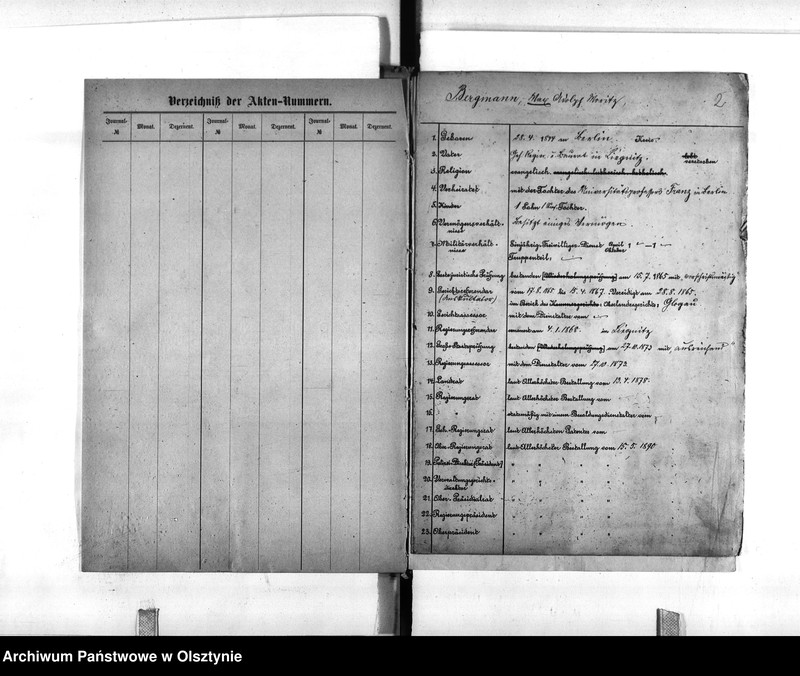 Verzeichniß der Akten-Nummern.
Journal-№ Monat. Dezernent. Journal-№ Monat. Dezernent. Journal-№ Monat. Dezernent.
Bergmann, Max Adolph Moritz, 2
1. Geboren 28. 4. 1844 in Berlin. Kreis:
2. Vater Geh. Regier. u. Baurat in Liegnitz. lebt verstorben
3. Religion evangelisch. evangelisch-lutherisch. katholisch.
4. Verheiratet mit der Tochter des Universitätsprofessors Franz in Berlin
5. Kinder 1 Sohn 1 Tochter.
6. Vermögensverhältnisse Besitzt einiges Vermögen.
7. Militärverhältnisse Einjährig-Freiwilliger-Dienst April Oktober 1 — 1
Truppenteil:
8. Erste juristische Prüfung bestanden (Wiederholungsprüfung) am 15. 7. 1865 mit
9. Gerichtsreferendar (Auskultator) vom 17. 8. 1865 bis 15. 4. 1867. Vereidigt am 28. 8. 1865.
im Bezirk des Kammergerichts: Oberlandesgerichts: Glogau
10. Gerichtsassessor mit dem Dienstalter vom
11. Regierungsreferendar ernannt am 4. 1. 1868 in Liegnitz
12. Große Staatsprüfung bestanden (Wiederholungsprüfung) am 27. 10. 1873 mit „ausreichend"
13. Regierungsassessor mit dem Dienstalter vom 27. 10. 1873.
14. Landrat laut Allerhöchster Bestallung vom 13. 4. 1878.
15. Regierungsrat laut Allerhöchster Bestallung vom
16. " etatsmäßig mit einem Besoldungsdienstalter vom
17. Geh. Regierungsrat laut Allerhöchsten Patentes vom
18. Ober-Regierungsrat laut Allerhöchster Bestallung vom 15. 5. 1890
19. (Präsident) " " " "
20. Verwaltungsgerichtsdirektor " " " "
21. Ober-Präsidialrat " " " "
22. Regierungspräsident " " " "
23. Oberpräsident " " " "
Archiwum Państwowe w Olsztynie